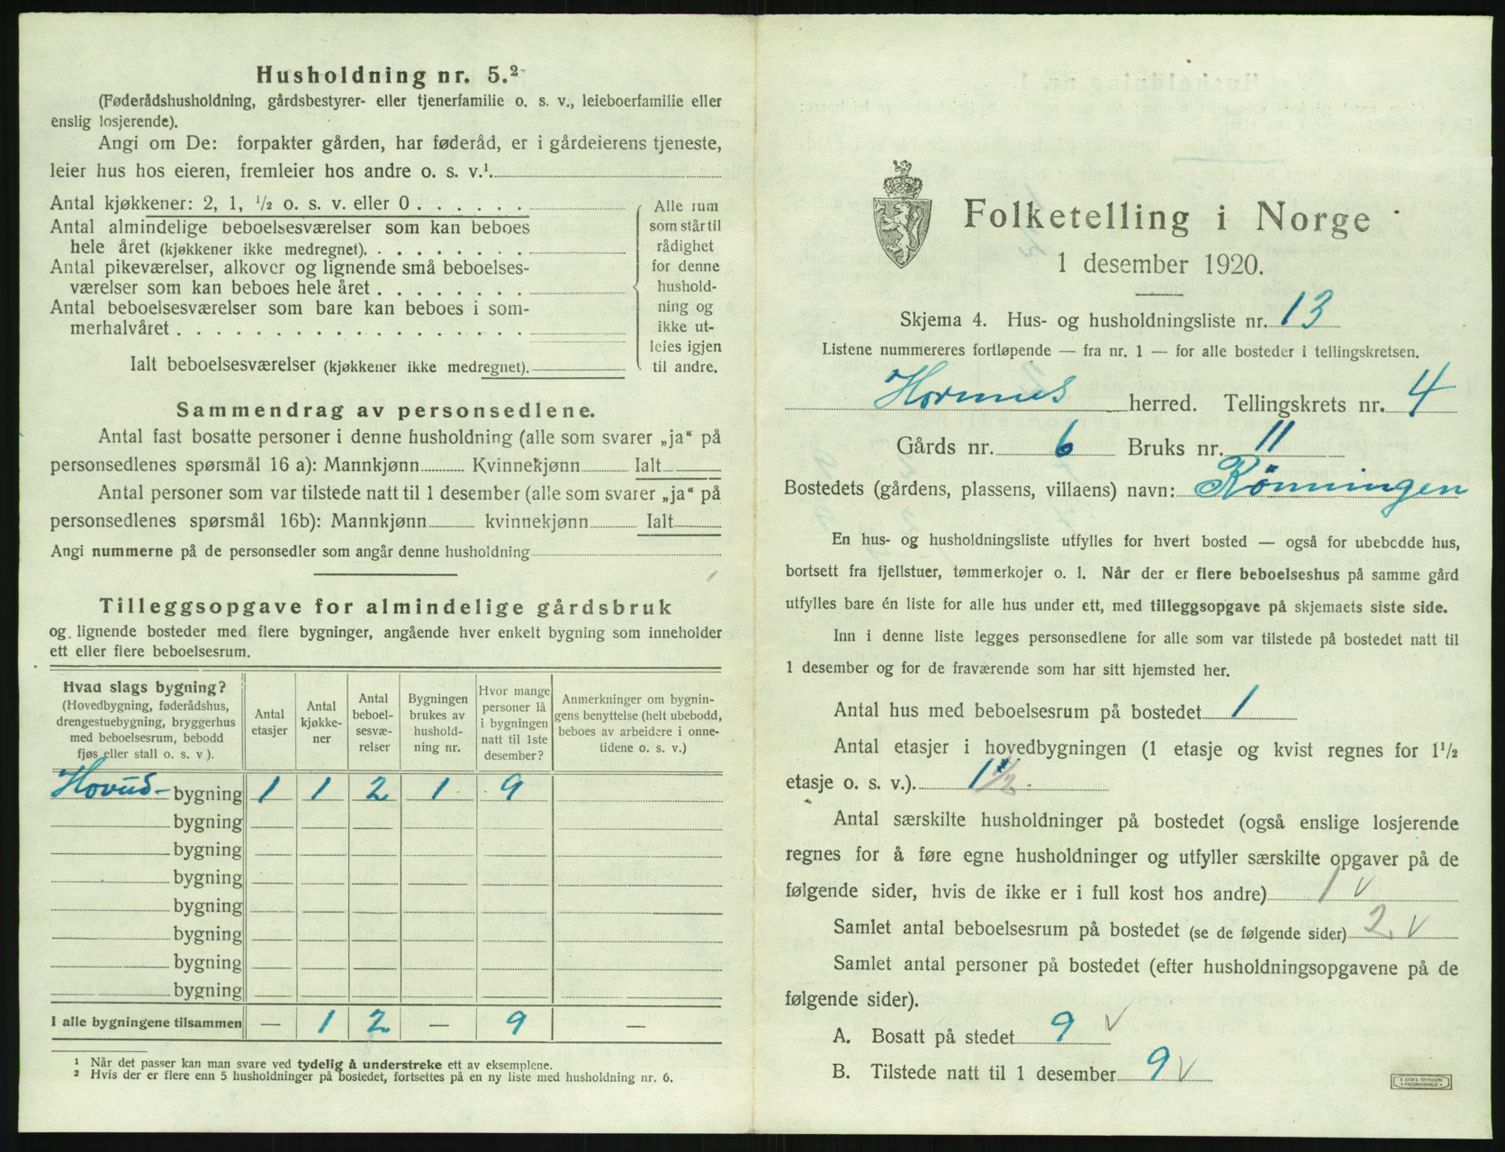 Husholdning nr. 5.²
(Føderådshusholdning, gårdsbestyrer- eller tjenerfamilie o. s. v., leieboerfamilie eller
enslig losjerende).
Angi om De: forpakter gården, har føderåd, er i gårdeierens tjeneste,
leier hus hos eieren, fremleier hos andre o. s. v.¹
Antal kjøkkener: 2, 1, ½ o. s. v. eller 0
Antal almindelige beboelsesværelser som kan beboes
hele året (kjøkkener ikke medregnet).
Antal pikeværelser, alkover og lignende små beboelses-
værelser som kan beboes hele året
Antal beboelsesværelser som bare kan beboes i som-
merhalvåret
Ialt beboelsesværelser (kjøkkener ikke medregnet).
Alle rum
som står til
rådighet
for denne
hushold-
ning og
ikke ut-
leies igjen
til andre.
Sammendrag av personsedlene.
Antal fast bosatte personer i denne husholdning (alle som svarer „ja“ på
personsedlenes spørsmål 16 a): Mannkjønn Kvinnekjønn Ialt
Antal personer som var tilstede natt til 1 desember (alle som svarer „ja“ på
personsedlenes spørsmål 16b): Mannkjønn kvinnekjønn Ialt
Angi nummerne på de personsedler som angår denne husholdning
Tilleggsopgave for almindelige gårdsbruk
og lignende bosteder med flere bygninger, angående hver enkelt bygning som inneholder
ett eller flere beboelsesrum.
Hvad slags bygning?
(Hovedbygning, føderådshus,
drengestuebygning, bryggerhus
med beboelsesrum, bebodd
fjøs eller stall o. s. v ).
Antal
etasjer
Antal
kjøkke-
ner
Antal
beboel-
sesvæ-
relser
Bygningen
brukes av
hushold-
ning nr.
Hvor mange
personer lå
i bygningen
natt til 1ste
desember?
Anmerkninger om bygnin-
gens benyttelse (helt ubebodd,
beboes av arbeidere i onne-
tidene o. s. v.)
Hovud- bygning 1 1 2 1 9
bygning
bygning
bygning
bygning
bygning
bygning
bygning
I alle bygningene tilsammen — 1 2 — 9 —
¹ Når det passer kan man svare ved tydelig å understreke ett av eksemplene.
² Hvis der er flere enn 5 husholdninger på bostedet, fortsettes på en ny liste med husholdning nr. 6.
Folketelling i Norge
1 desember 1920.
Skjema 4. Hus- og husholdningsliste nr. 13
Listene nummereres fortløpende — fra nr. 1 — for alle bosteder i tellingskretsen.
herred. Tellingskrets nr. 4
Gårds nr. 6 Bruks nr. 11
Bostedets (gårdens, plassens, villaens) navn: Rønningen
En hus- og husholdningsliste utfylles for hvert bosted — også for ubebodde hus,
bortsett fra fjellstuer, tømmerkojer o. l. Når der er flere beboelseshus på samme gård
utfylles bare én liste for alle hus under ett, med tilleggsopgave på skjemaets siste side.
Inn i denne liste legges personsedlene for alle som var tilstede på bostedet natt til
1 desember og for de fraværende som har sitt hjemsted her.
Antal hus med beboelsesrum på bostedet 1
Antal etasjer i hovedbygningen (1 etasje og kvist regnes for 1½
etasje o. s. v.). 1 ½
Antal særskilte husholdninger på bostedet (også enslige losjerende
regnes for å føre egne husholdninger og utfyller særskilte opgaver på de
følgende sider, hvis de ikke er i full kost hos andre) 1 v
Samlet antal beboelsesrum på bostedet (se de følgende sider) 2. v
Samlet antal personer på bostedet (efter husholdningsopgavene på de
følgende sider).
A. Bosatt på stedet 9 v
B. Tilstede natt til 1 desember 9 v